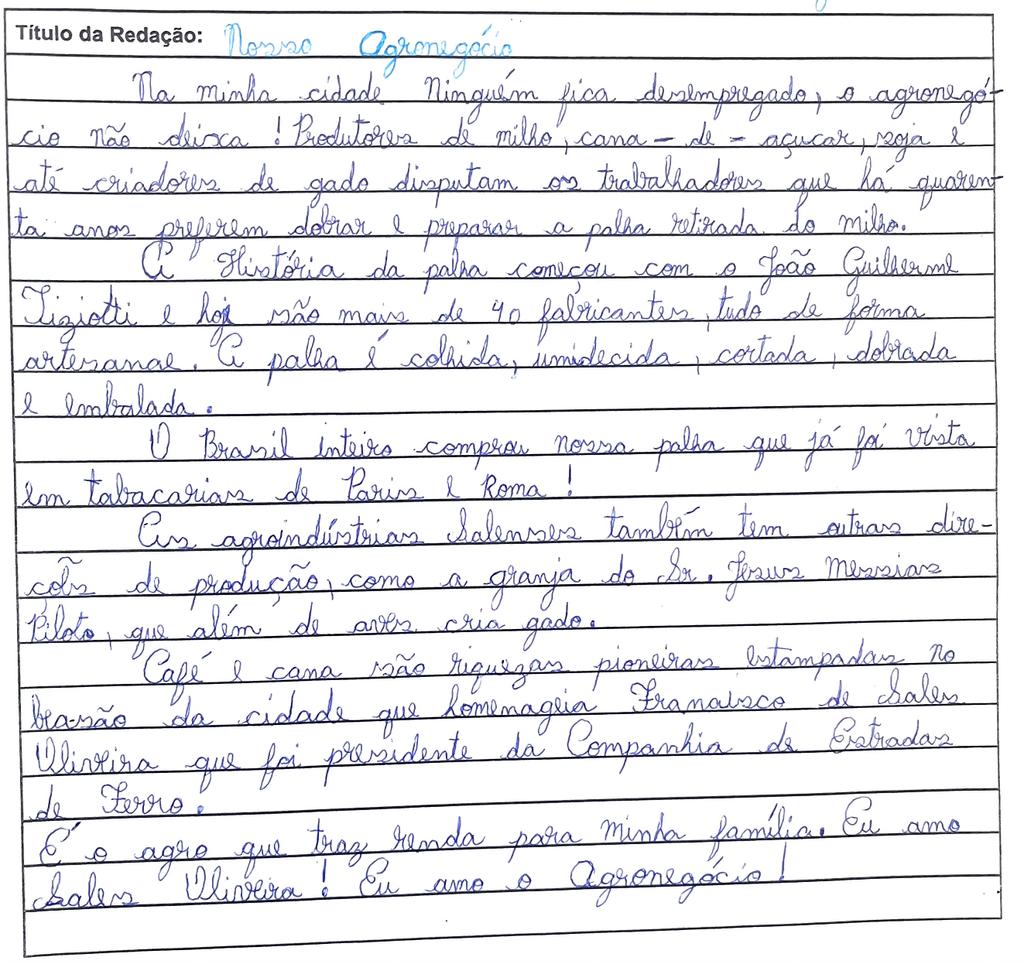 Título da Redação: Nosso Agronegócio
Na minha cidade Ninguém fica desempregado, o agronegó-
cio não deixa! Produtores de milho, cana-de-açucar, soja e
até criadores de gado disputam os trabalhadores que há quaren-
ta anos preferem dobrar e preparar a palha retirada do milho.
A História da palha começou com o João Guilherme
Tiziotti e hoje são mais de 40 fabricantes, tudo de forma
artesanal. A palha é colhida, umidecida, cortada, dobrada
e embalada.
O Brasil inteiro comprou nossa palha que já foi vista
em tabacarias de Paris e Roma!
As agroindústrias Salenses também tem outras dire-
ções de produção, como a granja do Sr. Jesus Messias
Piloto, que além de aves cria gado.
Café e cana são riquezas pioneiras estampadas no
brasão da cidade que homenageia Francisco de Sales
Oliveira que foi presidente da Companhia de Estradas
de Ferro.
É o agro que traz renda para minha família. Eu amo
Sales Oliveira! Eu amo o Agronegócio!